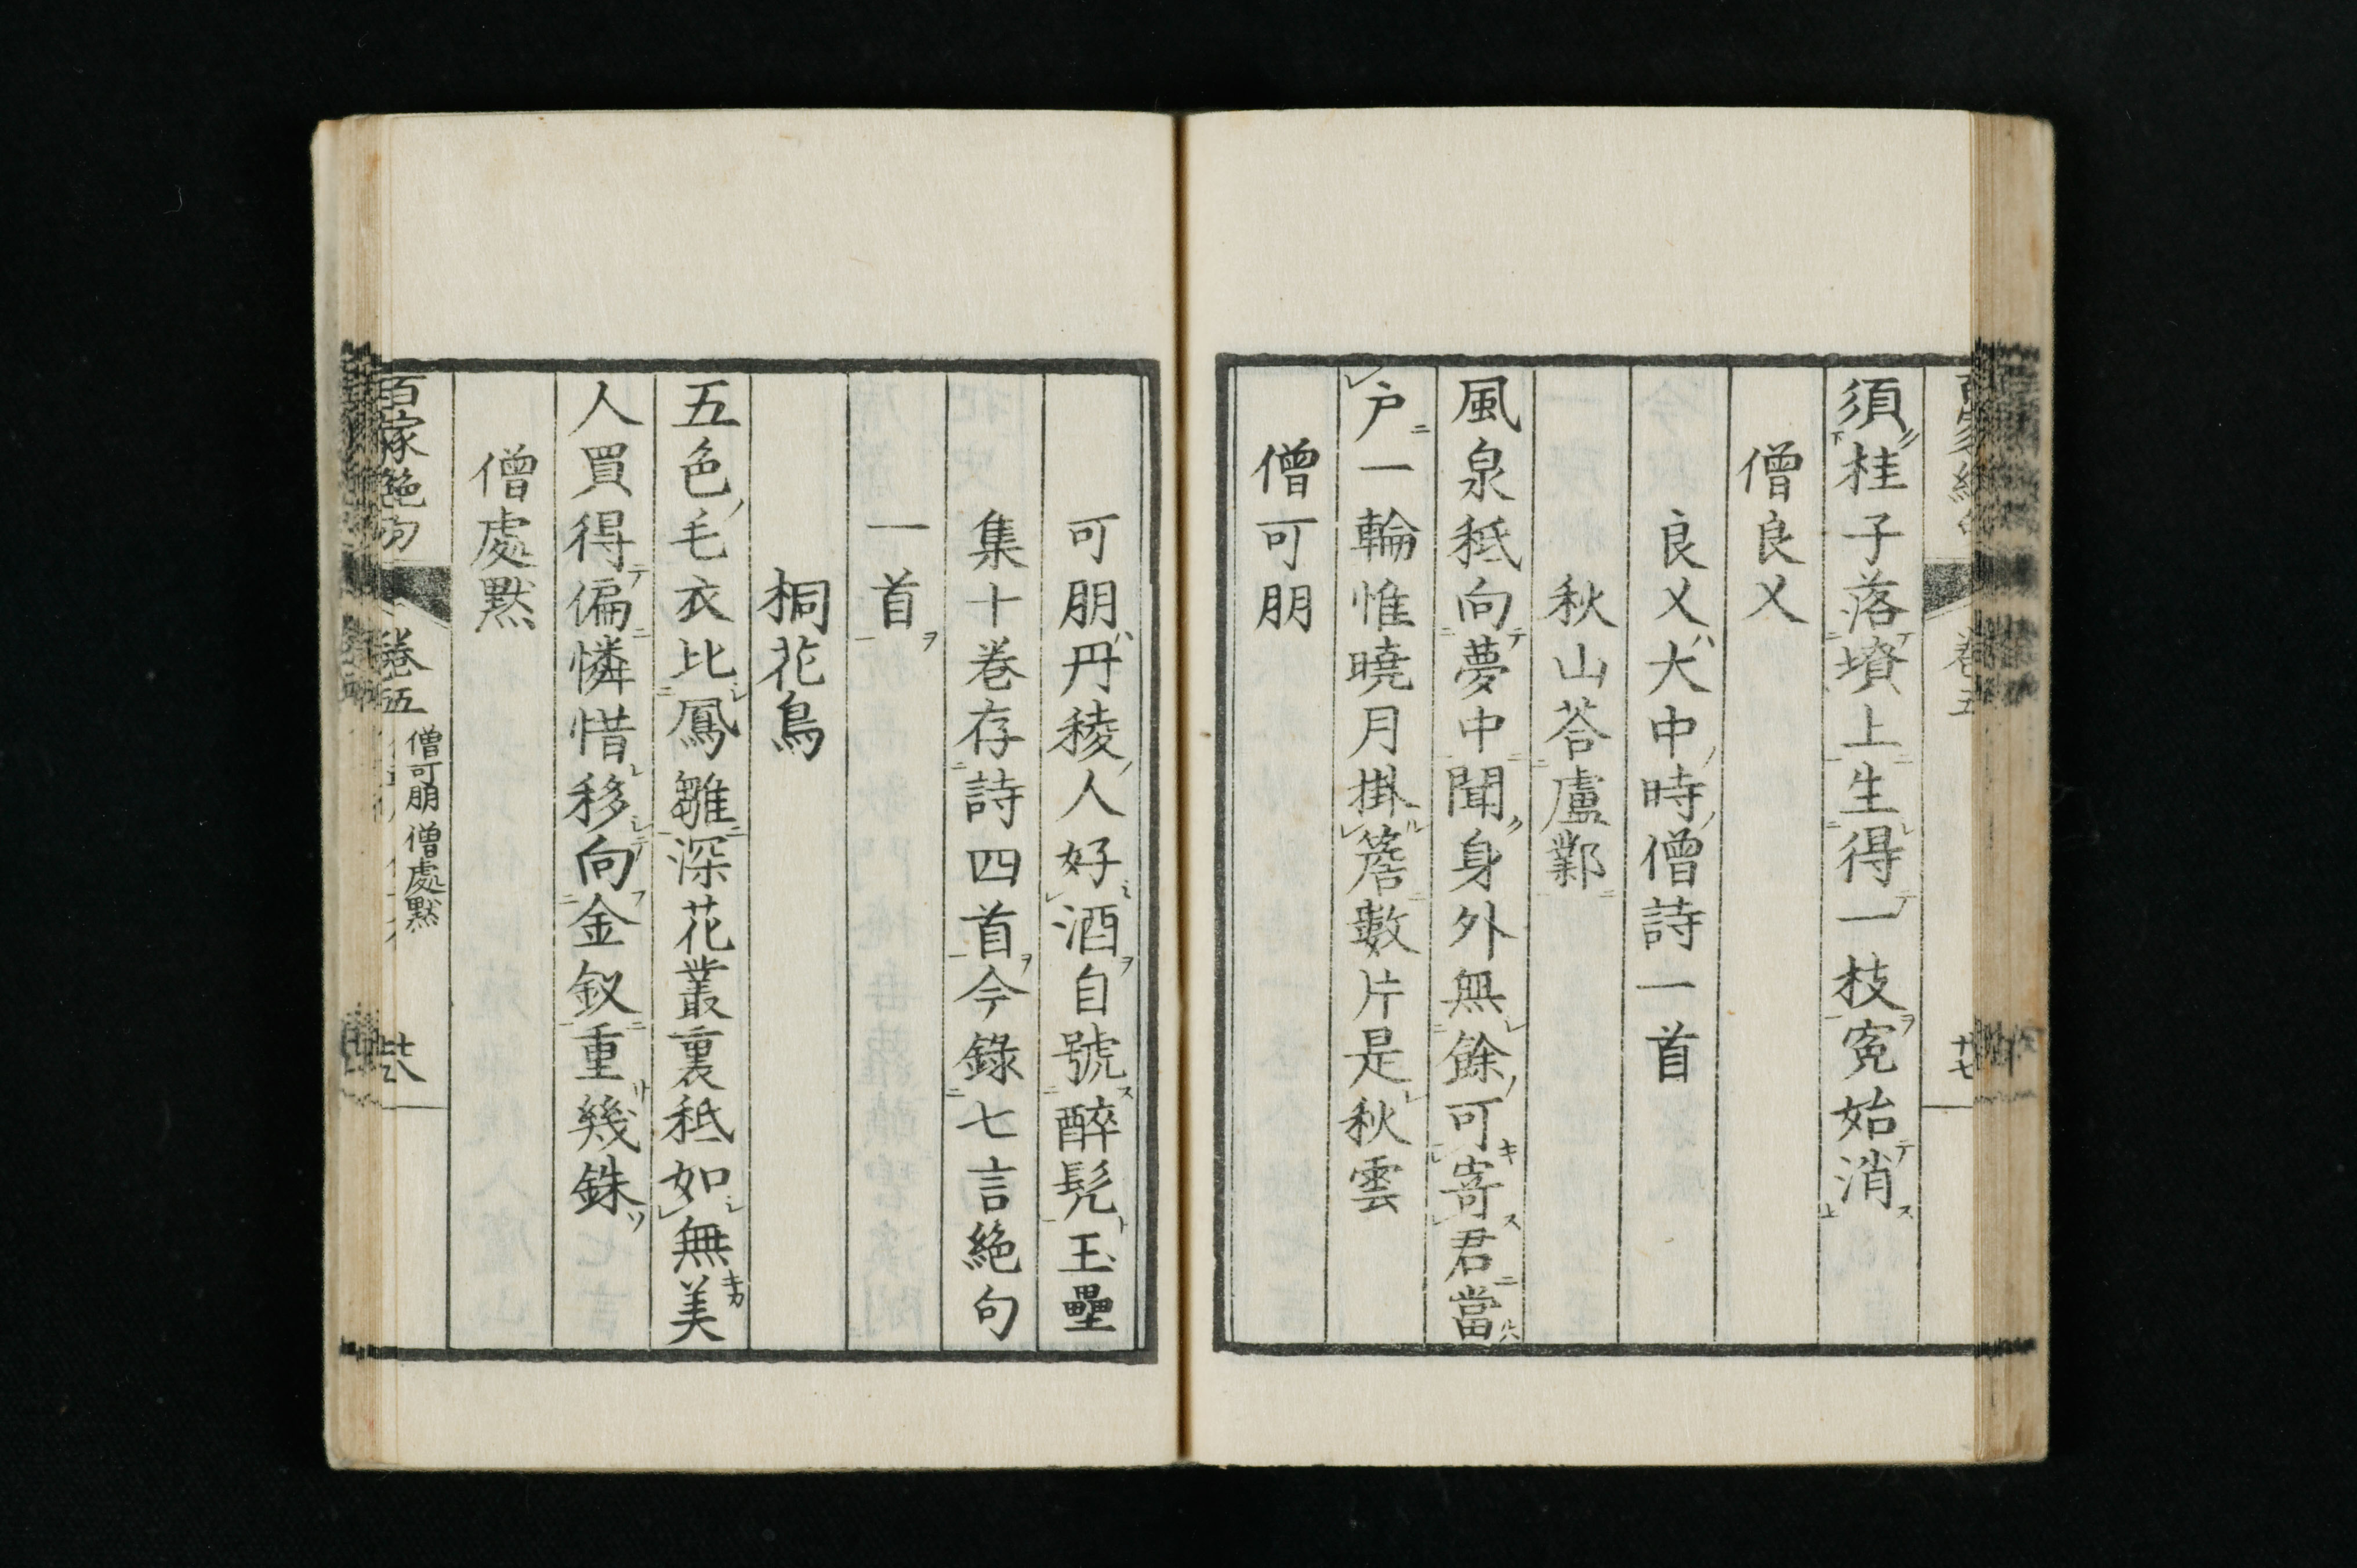 須桂子落墳上生得一枝寃始消
僧良乂
良乂大中時僧詩一首
秋山荅盧鄴
風泉秪向夢中聞身外無餘可寄君當
户一輪惟曉月掛簷數片是秋雲
僧可朋
可朋丹稜人好酒自號醉髡玉壘
集十巻存詩四首今錄七言絶句
一首
桐花鳥
五色毛衣比鳳雛深花叢裏秪如無美
人買得偏憐惜移向金釵重幾銖
僧處黙
百家絶句
巻五
僧可朋 僧處黙
廿八